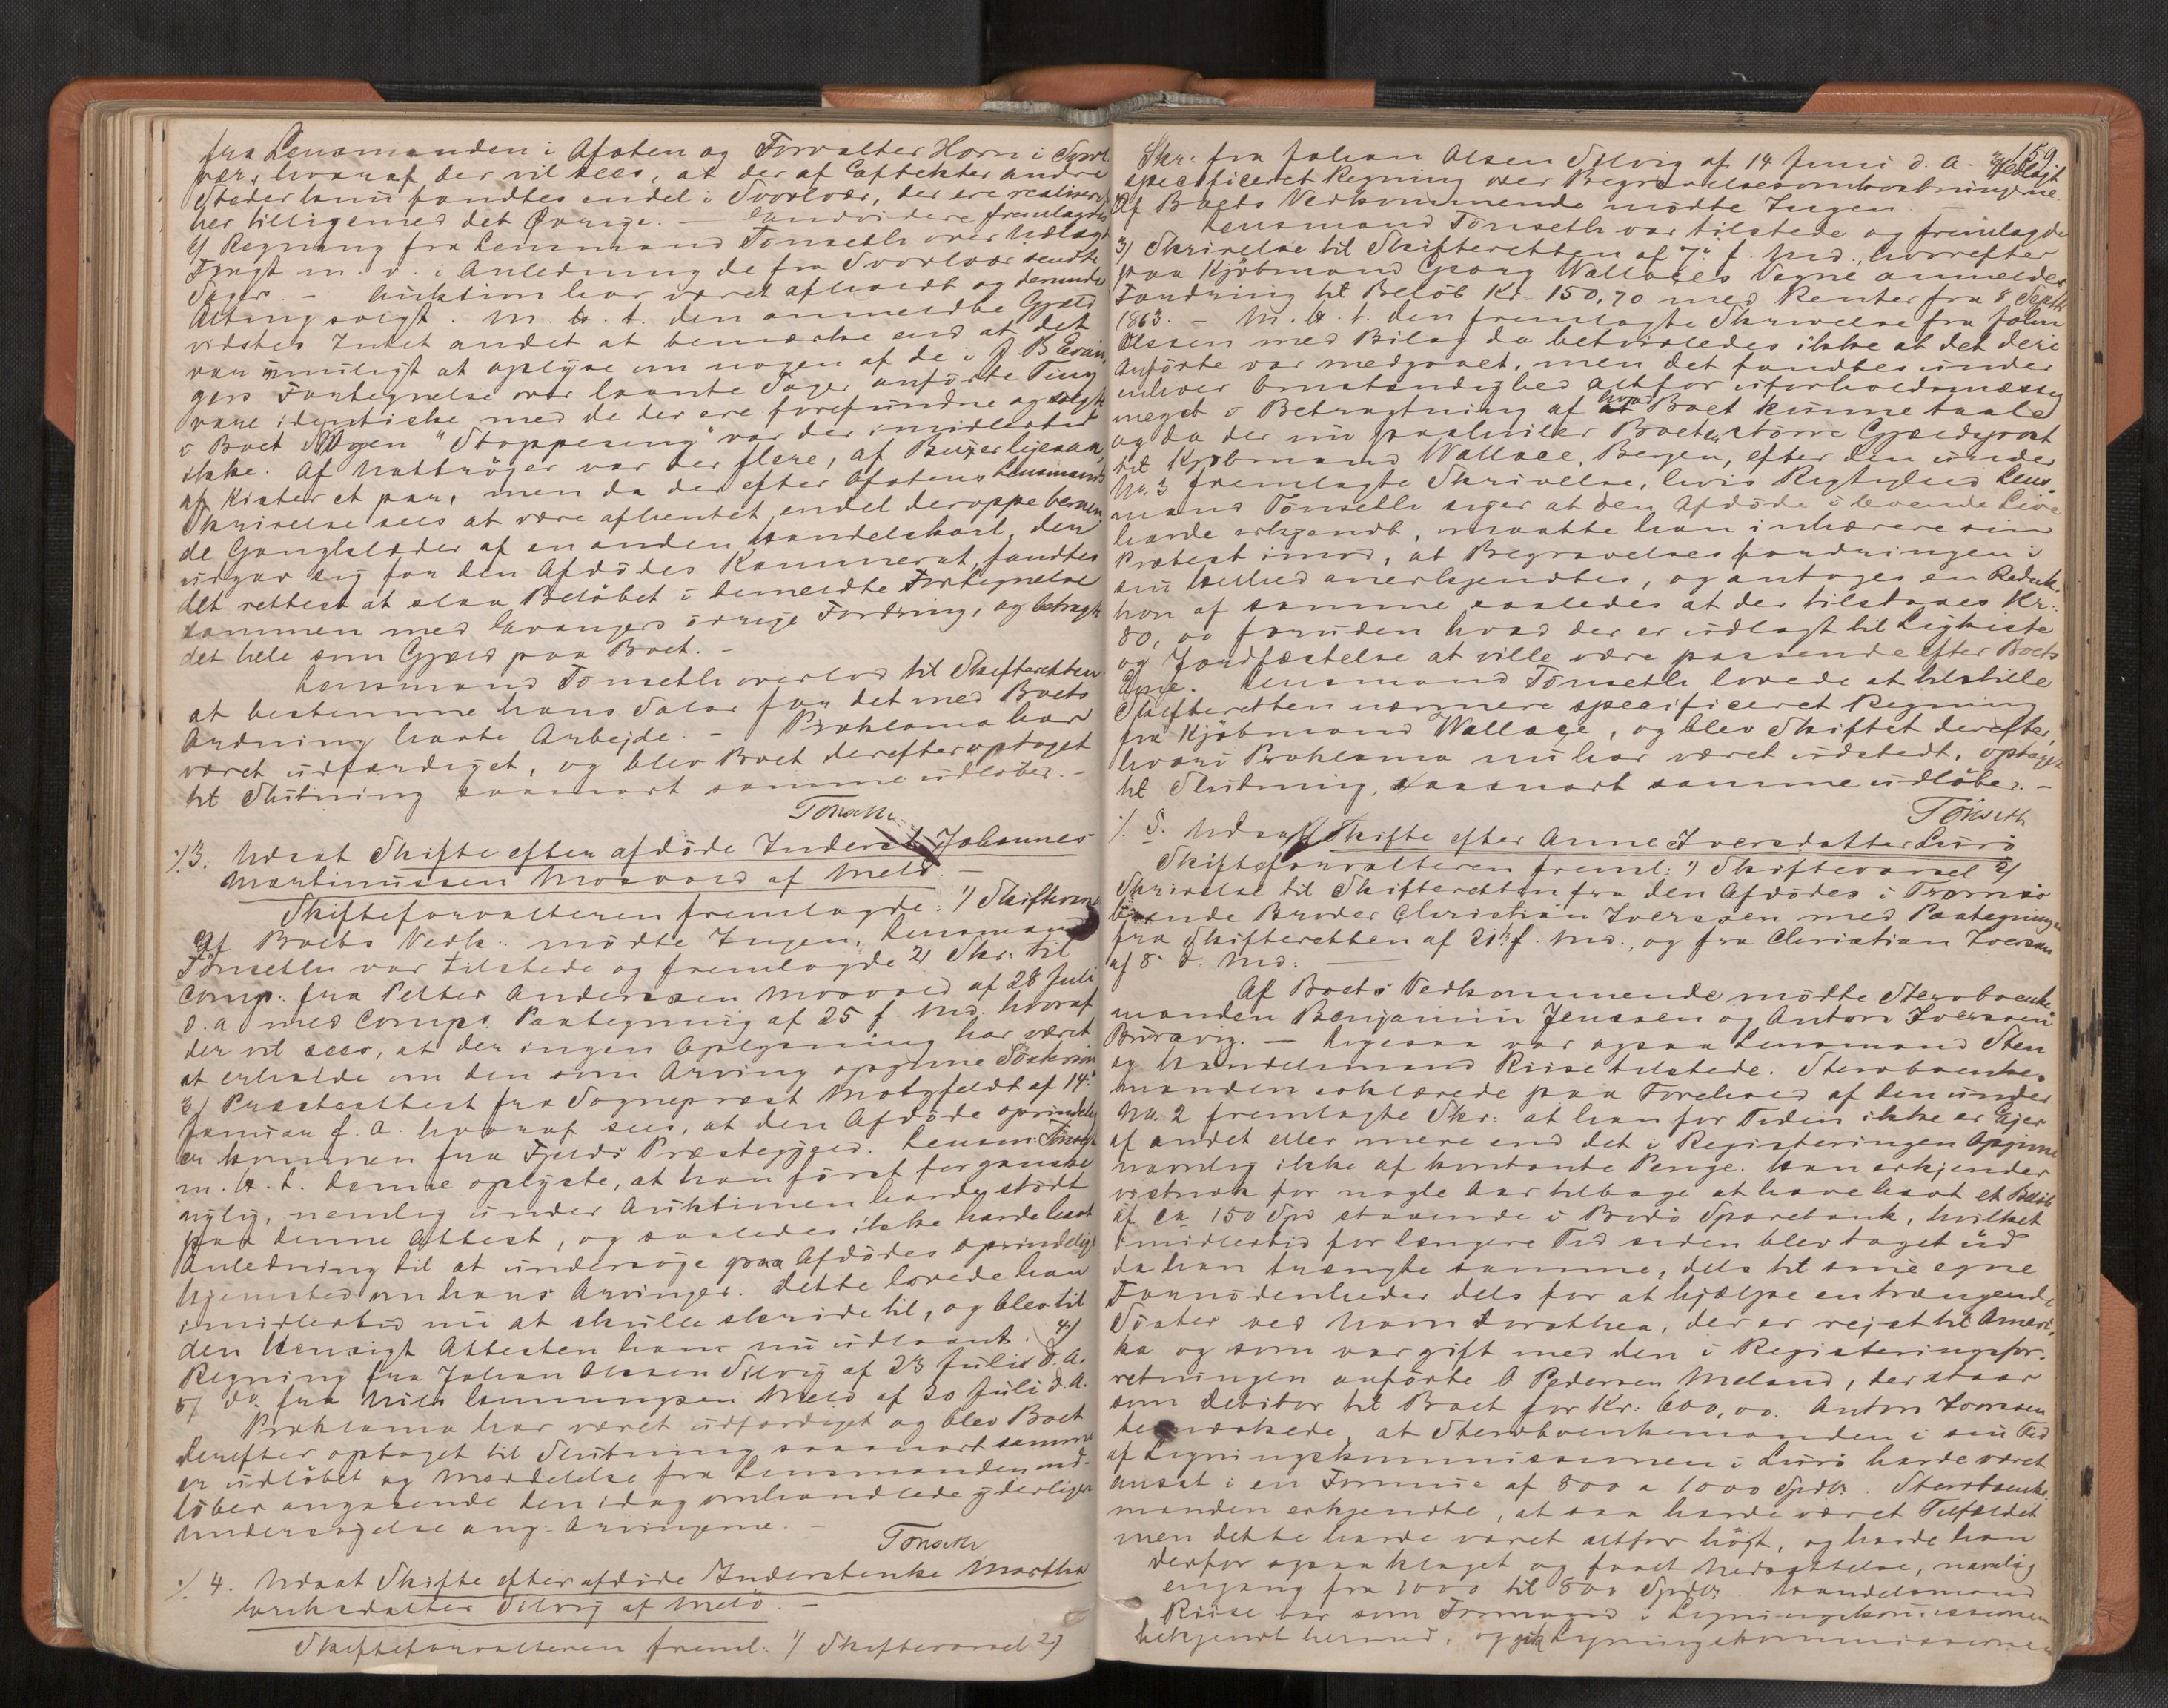 fra Lensmanden i Afoten og Forvalter Horn i Svol
vær, hvoraf der vil sees, at der af Effekter andre
Steder kun fandtes endel i Svolvær, der ere realiseret
her tilligemed det Øvrige. Endvidere fremlagdes
4) Regning fra Lensmand Tønseth over Udlagt
Fragt m. v. i Anledning de fra Svolvær sendte
Sager. - Auktion har været afholdt og derunde
Alting solgt. M. H. t. den anmeldte Gjæld
vidstes Intet andet at bemærke end at det
var umuligt at oplyse om nogen af de i J. B Evan-
gers Fortegnelse over laante Sager anførte Ting
vare identiske med de der ere forefundne og solgte
i Boet Nogen "Stoppeseng" var der imidlertid
ikke. Af Natttrøjer var der flere, af Buxer ligesaa
af Kister et par, men da der efter Afotens Lensmands
Skrivelse sees at være afhentet endel deroppe beroen
de Gangklæder af en anden Handelskarl, der
udgav sig for den Afdødes Kammerat, fandtes
det rettest at slaa Beløbet i bemeldte Fortegnelse
sammen med Evangers øvrige Fordring, og betragte
det hele som Gjæld paa Boet. -
Lensmand Tønseth overlod til Skifteretten
at bestemme hans Salær for det med Boets
Ordning havte Arbejde. - Proklama har
været udfærdiget, og blev Boet derefter optaget
til Slutning saasnart samme udløber. -
Tønseth
./. 3. Udsat Skifte efter afdøde Inderst Johannes
Martinussen Mosvold af Melø. -
Skifteforvalteren fremlagde: 1) Skiftevars
Af Boets Vedk. mødte Ingen. Lensmand
Tønseth var tilstede og fremlagde 2) Skr: til
Comp. fra Petter Anderssen Mosvold af 28 Juli
d. a. med Comps. Paategning af 25 f. Md. hvoraf
der vil sees, at der ingen Oplysning har været
at erholde om den som Arving opgivne Søstersøn
3) Præsteattest fra Sogneprest Motzfeldt af 14de
Januar d. A. hvoraf sees, at den Afdøde oprindelig
er kommen fra Fjelds Præstegjeld. Lensm: Tønseth
m. H. t. denne oplyste, at han først for ganske
nylig, nemlig under Auktionen havde stødt
paa denne Attest, og saaledes ikke havde havt
Anledning til at undersøge paa Afdødes oprindelige
Hjemsted om hans Arvinger. Dette lovede han
imidlertid nu at skulle skride til, og blev til
den Hensigt Attesten ham nu udlaant. 4)
Regning fra Johan Olssen Silvig af 23 Juli d. A.
5) do. fra Nils Lemmingsen Melø af 20 Juli d. A.
Proklama har været udfærdiget og blev Boet
derefter optaget til Slutning saasnart samme
er udløbet og Meddelelse fra Lensmanden ind-
løber angaaende den idag omhandlede yderligere
Undersøgelse ang: Arvingerne. -
Tønseth
./. 4. Udsat Skifte efter afdøde Inderstenke Martha
Eriksdatter Silvig af Melø. -
Skifteforvalteren freml: 1) Skiftevarsel 2)
159.
Skr: fra Johan Olsen Silvig af 14 Juni d. A. vedlagt
specificeret Regning over Begravelsesomkostningerne.
Af Boets Vedkommende mødte Ingen
Lensmand Tønseth var tilstede og fremlagde
3) Skrivelse til Skifteretten af 7de f. Md., hvorefter
paa Kjøbmand Georg Wallaces Vegne anmeldes
Fordring til Beløb Kr. 150,70 med Renter fra 8 Septbr
1863. - M. H. t. den fremlagte Skrivelse fra Johan
Olssen med Bilag da betvivledes ikke at det deri
Anførte var medgaaet, men det fandtes under
enhver Omstændighed altfor uforholdsmæssig
meget i Betragtning af hvad Boet kunne taale
og da der nu paahviler Boet en større Gjældspost
til Kjøbmand Wallace, Bergen, efter den under
No. 3 fremlagte Skrivelse, hvis Rigtighed Lens-
mand Tønseth siger at den Afdøde i levende Live
havde erkjendt, maatte han inhærere sin
Protest imod, at Begravelsesfordringen i
sin Helhed anerkjendtes, og antoges en Reduk-
tion af samme saaledes at der tilstaaes Kr.
80,00 foruden hvad der er udlagt til Ligkiste
og Jordfæstelse at ville være passende efter Boets
Evne. Lensmand Tønseth lovede at tilstille
Skifteretten nærmere specificeret Regning
fra Kjøbmand Wallace, og blev Skiftet derefter,
hvori Proklama nu har været udstedt, optaget
til Slutning, saasnart samme udløber. -
Tønseth
./. 5. Udsat Skifte efter Anne Iversdatter Lurø
Skifteforvalteren freml: 1) Skiftevarsel 2)
Skrivelse til Skifteretten fra den Afdødes i Tromsø
boende Broder Christian Iverssen med Paategninger
fra Skifteretten af 21de f. Md., og fra Christian Iversen
af 8de d. Md. -
Af Boets Vedkommende mødte Stervboenke
manden Benjamin Jenssen og Anton Iverssen
Buravig. - Ligesaa var ogsaa Lensmand Sten
og Handelsmand Riise tilstede. Stervboenke-
manden erklærede paa Forehold af den under
No. 2 fremlagte Skr: at han for Tiden ikke er Ejer
af andet eller mere end det i Registeringen Opgivne
navnlig ikke af kontante Penge. Han erkjender
vistnok for nogle Aar tilbage at have havt et Beløb
af ca 150 Spd staaende i Bodø Sparebank, hvilket
imidlertid for længere Tid siden blev taget ud
da han trængte samme, dels til sine egne
Fornødenheder dels for at hjælpe en trængende
Søster ved Navn Dorothea, der er rejst til Ameri-
ka og som var gift med den i Registeringsfor-
retningen anførte O Pedersen Meland, der staar
som Debitor til Boet for Kr: 600,00. Anton Iverssen
bemærkede, at Stervboenkemanden i sin Tid
af Ligningskommissionen i Lurø havde været
ansat i en Formue af 800 a 1000 Spdlr. Stervboenke-
manden erkjendte, at saa havde været Tilfældet
men dette havde været altfor høgt, og havde han
derfor ogsaa klaget og faaet Nedsættelse, navnlig
engang fra 1000 til 800 Spdlr. Handelsmand
Riise var som Formand i Ligningskommissionen
bekjendt hermed, og gik Ligningskommissionen